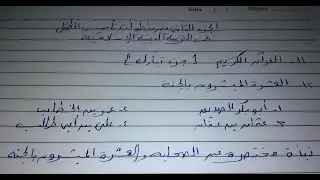 الجزء الثاني من خطوات تأسيس الطفل
في التربية الدينية الإسلامية
١١- القرآن الكريم [ جزء تبارك ]
١٢- العشرة المبشرون بالجنة
١- أبو بكر الصديق ٢- عمر بن الخطاب
٣- عثمان بن عفان ٤- علي بن أبي طالب
نبذة مختصرة عن الصحابة والعشرة المبشرون بالجنة